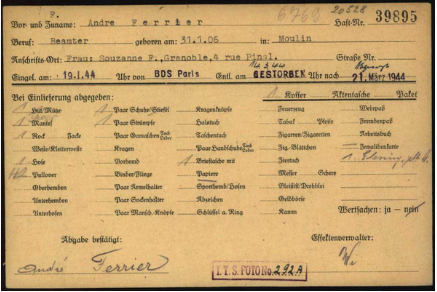 F. 6768 20528
Vor- und Zuname: Andre Ferrier Haft-Nr. 39895
Beruf: Beamter geboren am 31.1.06 in Moulin
Anschrifts-Ort: Frau: Souzanne F., Grenoble, 4 rue Pinal. Straße Nr.
Eingel. am 19.1.44 Uhr von BDS Paris Entl. am GESTORBEN Uhr nach 21. März 1944
Bei Einlieferung abgegeben: 1 Koffer Aktentasche Paket
1 Hut/Mütze Paar Schuhe/Stiefel Kragenknöpfe Feuerzeug Wehrpaß
1 Mantel Paar Strümpfe Halstuch Tabak Pfeife Fremdenpaß
1 Rock Jacke Paar Gamaschen Tuch Leder Taschentuch Zigarren/Zigaretten Arbeitsbuch
Weste/Kletterweste Kragen Paar Handschuhe Tuch Leder Zig.-Blättchen Invalidenkarte
1 Hose Vorhemd 1 Brieftasche mit Zimmer/Schere
Pullover Binder/Fliege Papiere Messer Schere
Oberhemden Paar Ärmelhalter Sporthemd/Hosen Bleistift/Drehblei
Unterhemden Paar Sockenhalter Abzeichen Geldbörse
Unterhosen Paar Mansch.-Knöpfe Schlüssel a. Ring Kamm Wertsachen: ja – nein
Abgabe bestätigt: Effektenverwalter:
André Ferrier
I.T.S. FOTO No. 292A